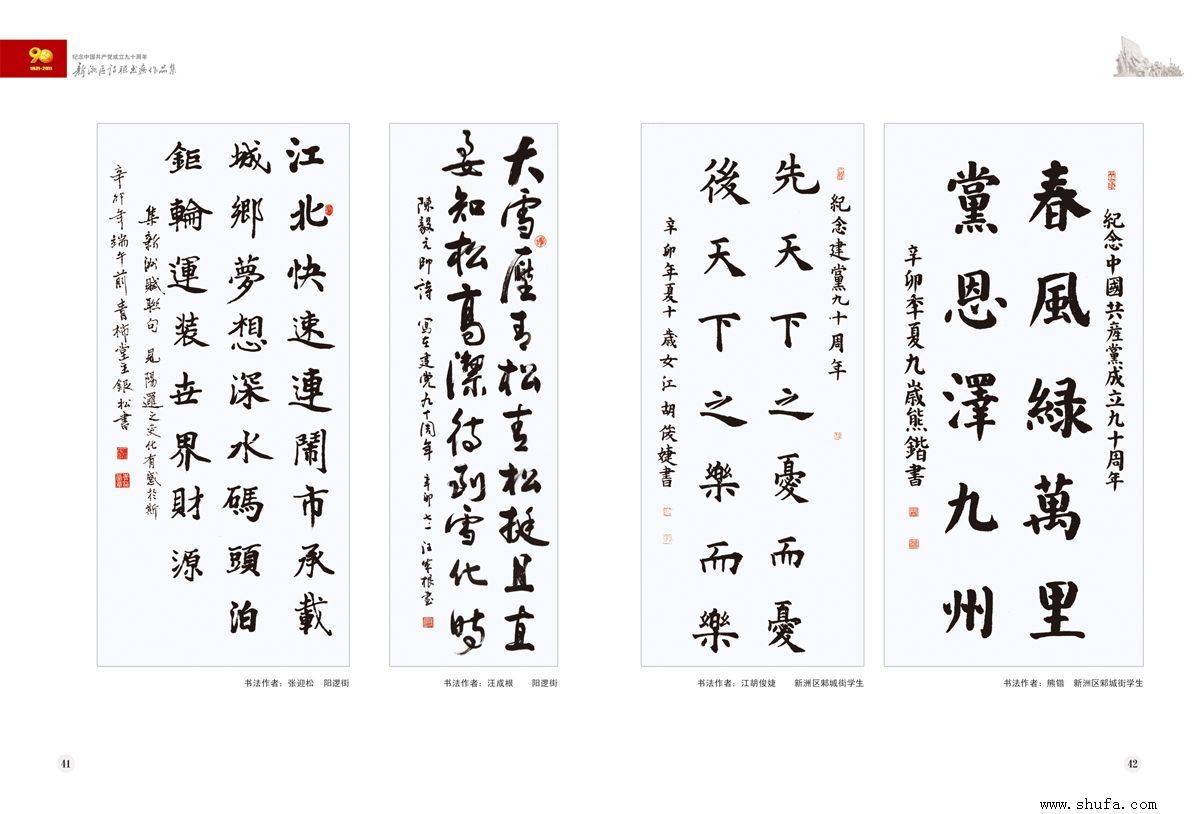 90
1921-2011
纪念中国共产党成立九十周年
新洲区诗联书画作品集
江北快速連鬧市承載
城鄉夢想深水碼頭泊
鉅輪運装世界財源
集新洲賦聯句 見陽邏之文化有感於斯
辛卯年端午前 青柿堂主鋃松書
大雪壓青松青松挺且直
要知松高潔待到雪化時
陳毅元帥詩 寫在建党九十周年 辛卯七一 汪成根書
紀念建黨九十周年
先天下之憂而憂
後天下之樂而樂
辛卯年夏十歲女江胡俊婕書
紀念中國共産黨成立九十周年
春風緑萬里
黨恩澤九州
辛卯季夏九歲熊鍇書
书法作者：张迎松 阳逻街
书法作者：汪成根 阳逻街
书法作者：江胡俊婕 新洲区邾城街学生
书法作者：熊锴 新洲区邾城街学生
41
42
www.shufa.com